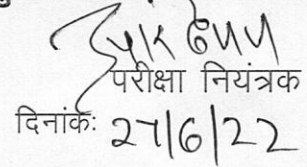 परीक्षा नियंत्रक
दिनांक: 27/6/22